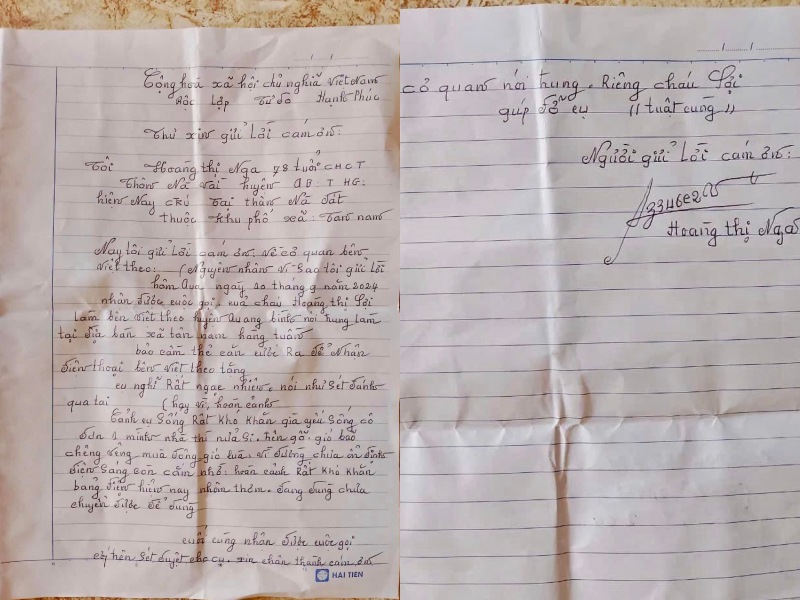 Cộng hoà xã hội chủ nghĩa việt Nam
Độc lập Tự do Hạnh Phúc
Thư xin gửi lời cám ơn:
Tôi Hoàng thị Nga 78 tuổi CHCT
Thôn Nà vài huyện QB: T HG:
hiện Nay cư tại thôn Nà đát
thuộc khu phố xã: tân nam
Nay tôi gửi lời cám ơn: về cơ quan bên
viết theo: (Nguyên nhân vì sao tôi gửi lời
hôm qua ngày 20 tháng 9 năm 2024
nhận được cuộc gọi, của cháu Hoàng thị Sợi
làm bên viết theo huyện quang bình nói chung làm
tại địa bàn xã tân nam hàng tuần
bảo cầm thẻ căn cước Ra để Nhận
điện thoại bên viết theo tặng
cụ nghĩ Rất ngạc nhiên, nói như sét đánh
qua tai (hay vì, hoàn cảnh
cảnh cụ sống Rất khó khăn già yếu sống cô
đơn 1 mình nhà thì nửa gỗ, gió bão
chẳng riêng mùa đông gió lùa, vì đường chưa ổn định
điện sáng con cắm nhờ: hoàn cảnh Rất khó khăn
bảng điện hiện nay nhôm thôm, đang dùng chưa
chuyển được để dùng
cuối cùng nhận được cuộc gọi
xét duyệt cho cụ, xin chân thành cám ơn
HAI TIEN
cơ quan nói chung. Riêng cháu Sợi
giúp đỡ cụ "tuất cùng"
Người gửi lời cám ơn:
Hoàng thị Nga